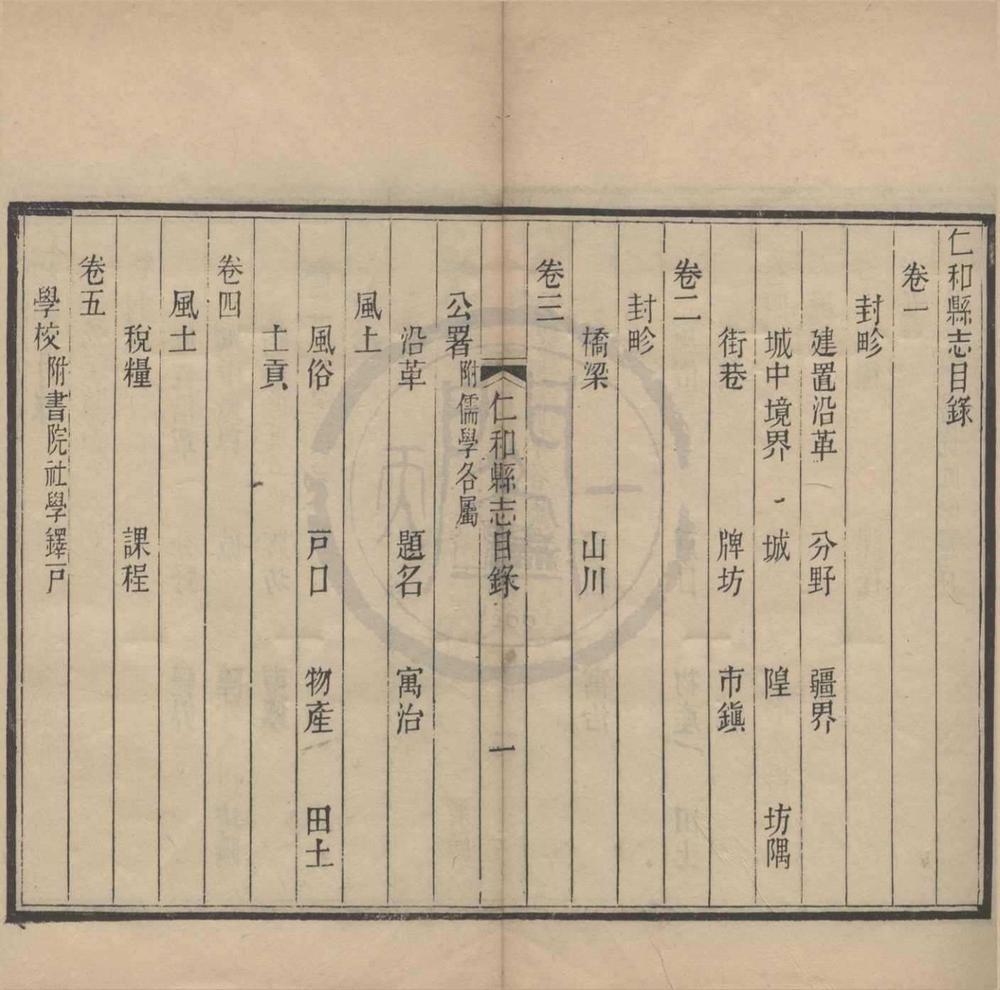 仁和縣志目錄
卷一
封畛
建置沿革 分野 疆界
城中境界 城 隍 坊隅
街巷 牌坊 市鎭
卷二
封畛
橋梁 山川
卷三
公署附儒學各屬
仁和縣志目錄 一
沿革 題名 寓治
風土
風俗 戸口 物產 田土
土貢
卷四
風土
稅糧 課程
卷五
學校附書院社學鐸戸